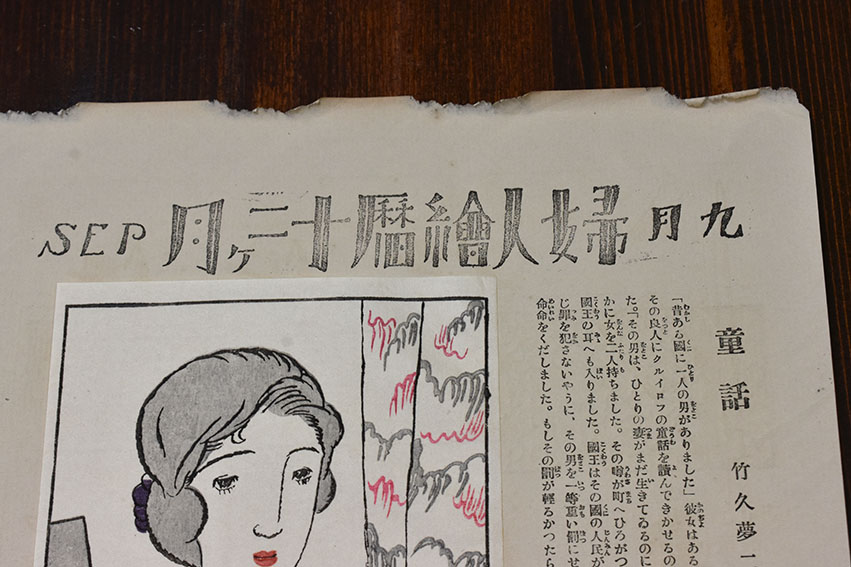 九月 婦人繪暦十二ヶ月 SEP
童話
竹久夢
「昔ある國に一人の男がありました」彼女はある
その良人にクルイロフの童話を讀んできかせるの
た。「その男は、ひとりの妻がまだ生きてゐるのに
かに女を二人持ちました。その噂が町へひろがつ
國王の耳へも入りました。國王はその國の人民が
じ罪を犯さないやうに、その男を一等重い罰にせ
命令をくだしました。もしその罰が輕るかつたら